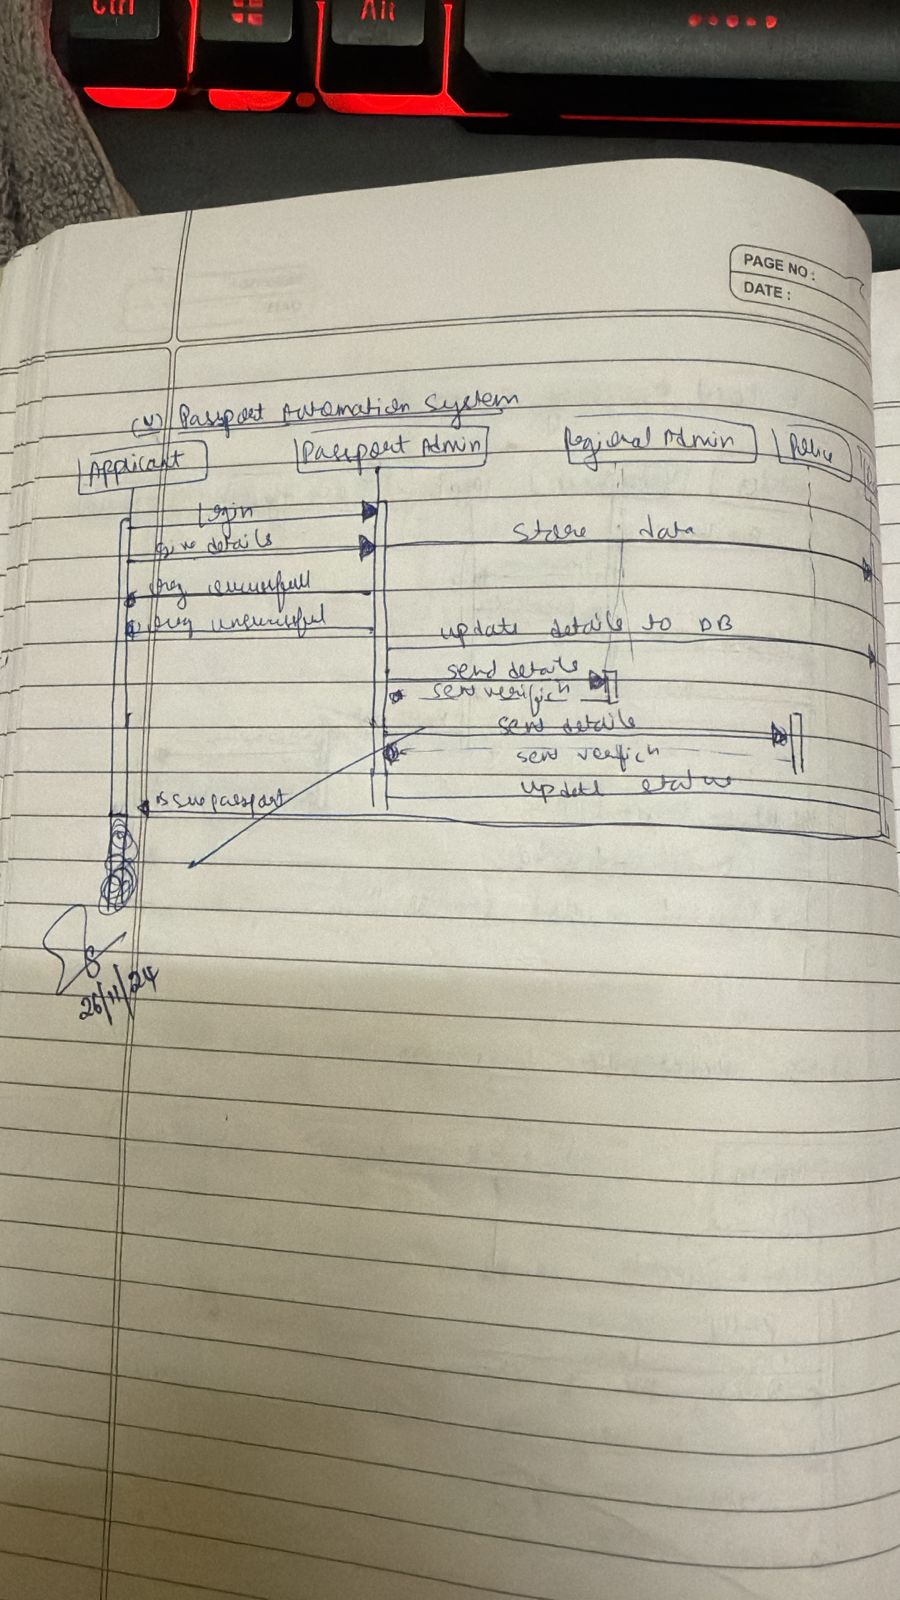 Ctrl
Alt
PAGE NO :
DATE :
(V) Passport Automation System
Applicant
Passport Admin
Regional Admin
Police
login
give details
store data
reg successfull
reg unsuccessful
update details to DB
send details
send verifich
send details
send verfich
update status
issue passport
26/11/24